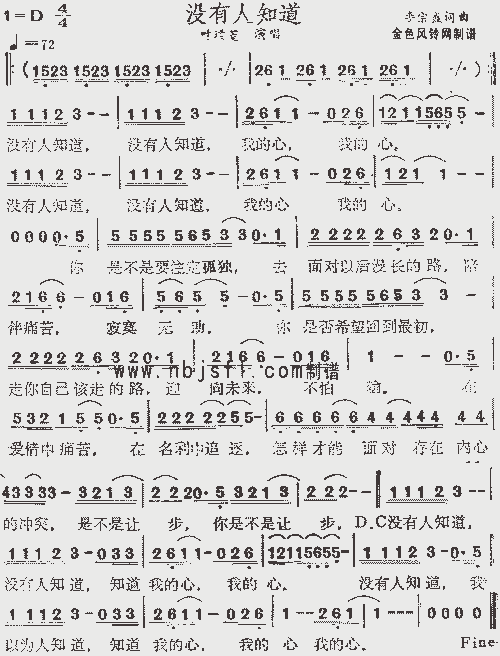 没有人知道
1=D 4/4
李宗盛词曲
♩=72
叶璦菱 演唱
金色风铃网制谱
‖:(1523 1523 1523 1523 | ·/· | 261 261 261 261 | ·/· ):‖
1 1 1 2 3 - - | 1 1 1 2 3 - - | 2 6 1 1 - 0 2 6 | 1 2 1 1 5 6 5 5 -
没有人知道， 没有人知道， 我的心， 我的 心，
1 1 1 2 3 - - | 1 1 1 2 3 - - | 2 6 1 1 - 0 2 6 | 1 2 1 1 - -
没有人知道， 没有人知道， 我的心 我的 心。
0 0 0 0 · 5 | 5 5 5 5 5 6 5 3 3 0 · 1 | 2 2 2 2 2 6 3 2 0 · 1
你 是不是要注定孤独， 去 面对以后漫长的路， 陪
2 1 6 6 - 0 1 6 | 5 6 5 5 - 0 · 5 | 5 5 5 5 5 6 5 3 3 -
伴痛苦， 寂寞 无 助， 你 是否希望回到最初，
2 2 2 2 2 6 3 2 0 · 1 | 2 1 6 6 - 0 1 6 | 1 - - 0 · 5
www.nbjsff.com制谱
走你自己该走的路， 迎 向未来， 不怕 输。 在
5 3 2 1 5 5 0 · 5 | 2 2 2 2 2 5 5 - | 6 6 6 6 6 4 4 4 4 4 4
爱情中痛苦， 在 名利中追逐， 怎样才能 面对 存在 内心
4 3 3 3 3 - 3 2 1 3 | 2 2 2 0 · 5 3 2 1 3 | 2 2 2 - - | 1 1 1 2 3 - -
的冲突， 是不是让 步， 你是不是让 步，D.C没有人知道，
1 1 1 2 3 - 0 3 3 | 2 6 1 1 - 0 2 6 | 1 2 1 1 5 6 5 5 - | 1 1 1 2 3 - 0 · 5
没有人知道， 知道 我的心， 我的 心。 没有人知道， 我
1 1 1 2 3 - 0 3 3 | 2 6 1 1 - 0 2 6 | 1 - - 2 6 1 | 1 - - - | 0 0 0 0 ‖
以为人知道， 知道 我的心， 我的 心 我的心。 Fine